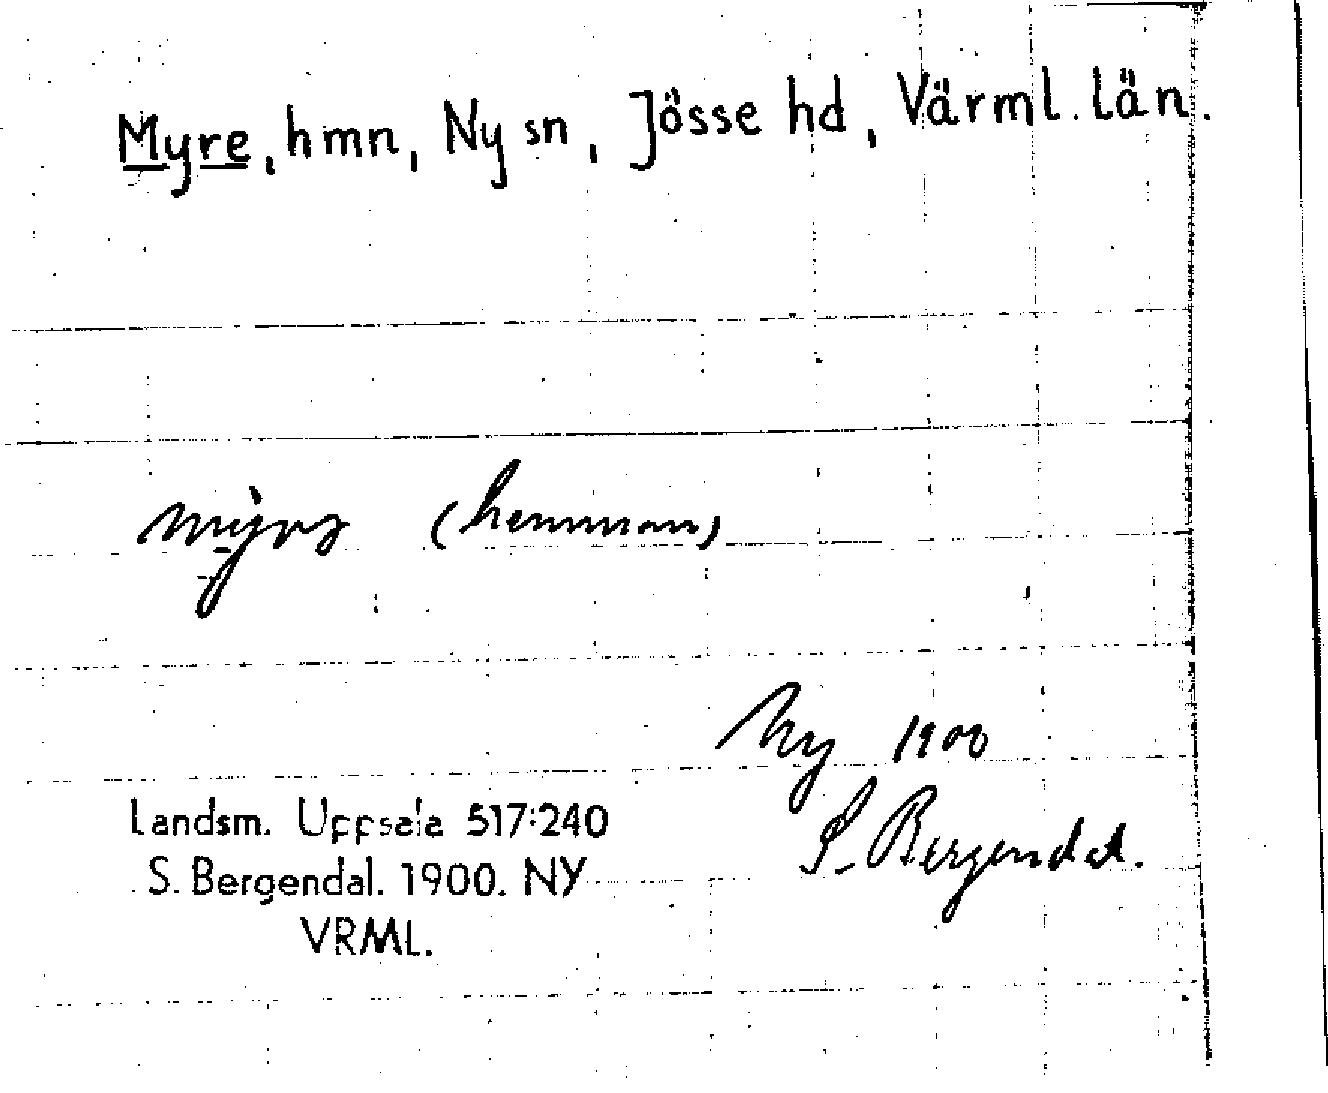 Myre, hmn, Ny sn, Jösse hd, Värml. län.
(hemman)
Ny 1900
S. Bergendal.
Landsm. Uppsala 517:240
S. Bergendal. 1900. NY
VRML.